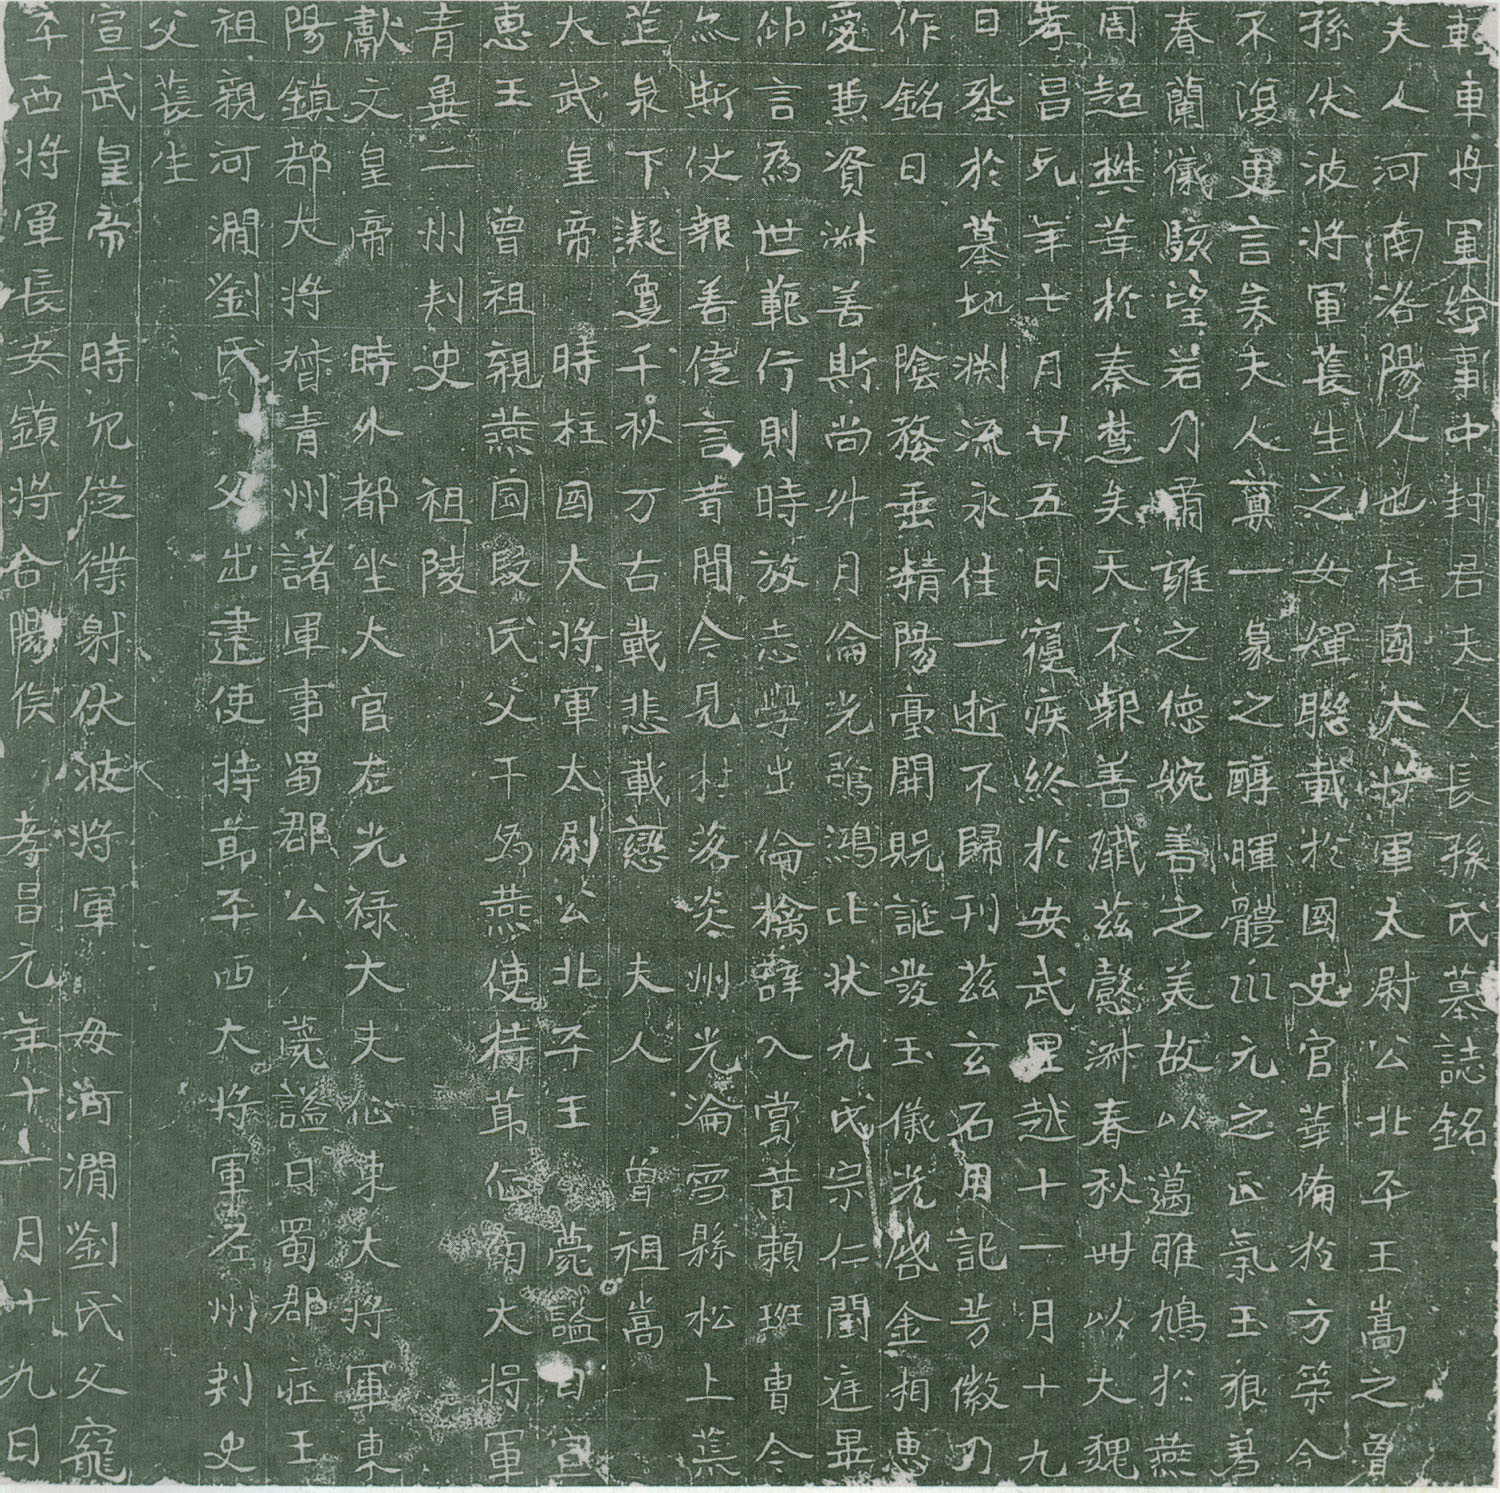 輕車將軍給事中封君夫人長孫氏墓誌銘
夫人河南洛陽人也柱國大將軍太尉公北平王嵩之曾
孫伏波將軍萇生之女輝聯載於國史官華備於方策今
不復更言矣夫人稟一象之醇暉體三元之正氣玉狼著
春蘭儀駭望若乃肅雍之德婉善之美故以邁雎鳩於燕
周超樊華於秦楚矣天不報善殲茲懿淋春秋卌以大魏
孝昌元年七月廿五日寢疾終於安武里越十一月十九
日塟於墓地渊流永住一逝不歸刊茲玄石用記芳徽乃
作銘曰 陰婺垂精陽臺開貺誕發玉儀光啓金相惠
愛資淋善斯尚升月淪光鴻比状九氏宗仁閨庭
仰言為世範行則時放志學出倫擒辞入賞昔賴班曹今
亦斯仗報善佳言昔聞今見落炎州光淪雪縣松上蒸
泉下凝千秋万古載悲載戀 夫人 曾祖嵩
大武皇帝 時柱國大將軍太尉公北平王 薨謚曰宣
惠王 曾祖親燕國段氏父干為燕使持節征南大將軍
青冀二州刾史 祖陵
獻文皇帝 時外都坐大官左光祿大夫征東大將軍東
陽鎮都大將督青州諸軍事蜀郡公 薨謚曰蜀郡莊王
祖親河澗劉氏父出建使持節平西大將軍涇州刾史
父萇生
宣武皇帝 時冗從僕射伏波將軍 母河澗劉氏父寵
平西將軍長安鎮將合陽侯 孝昌元年十一月十九日